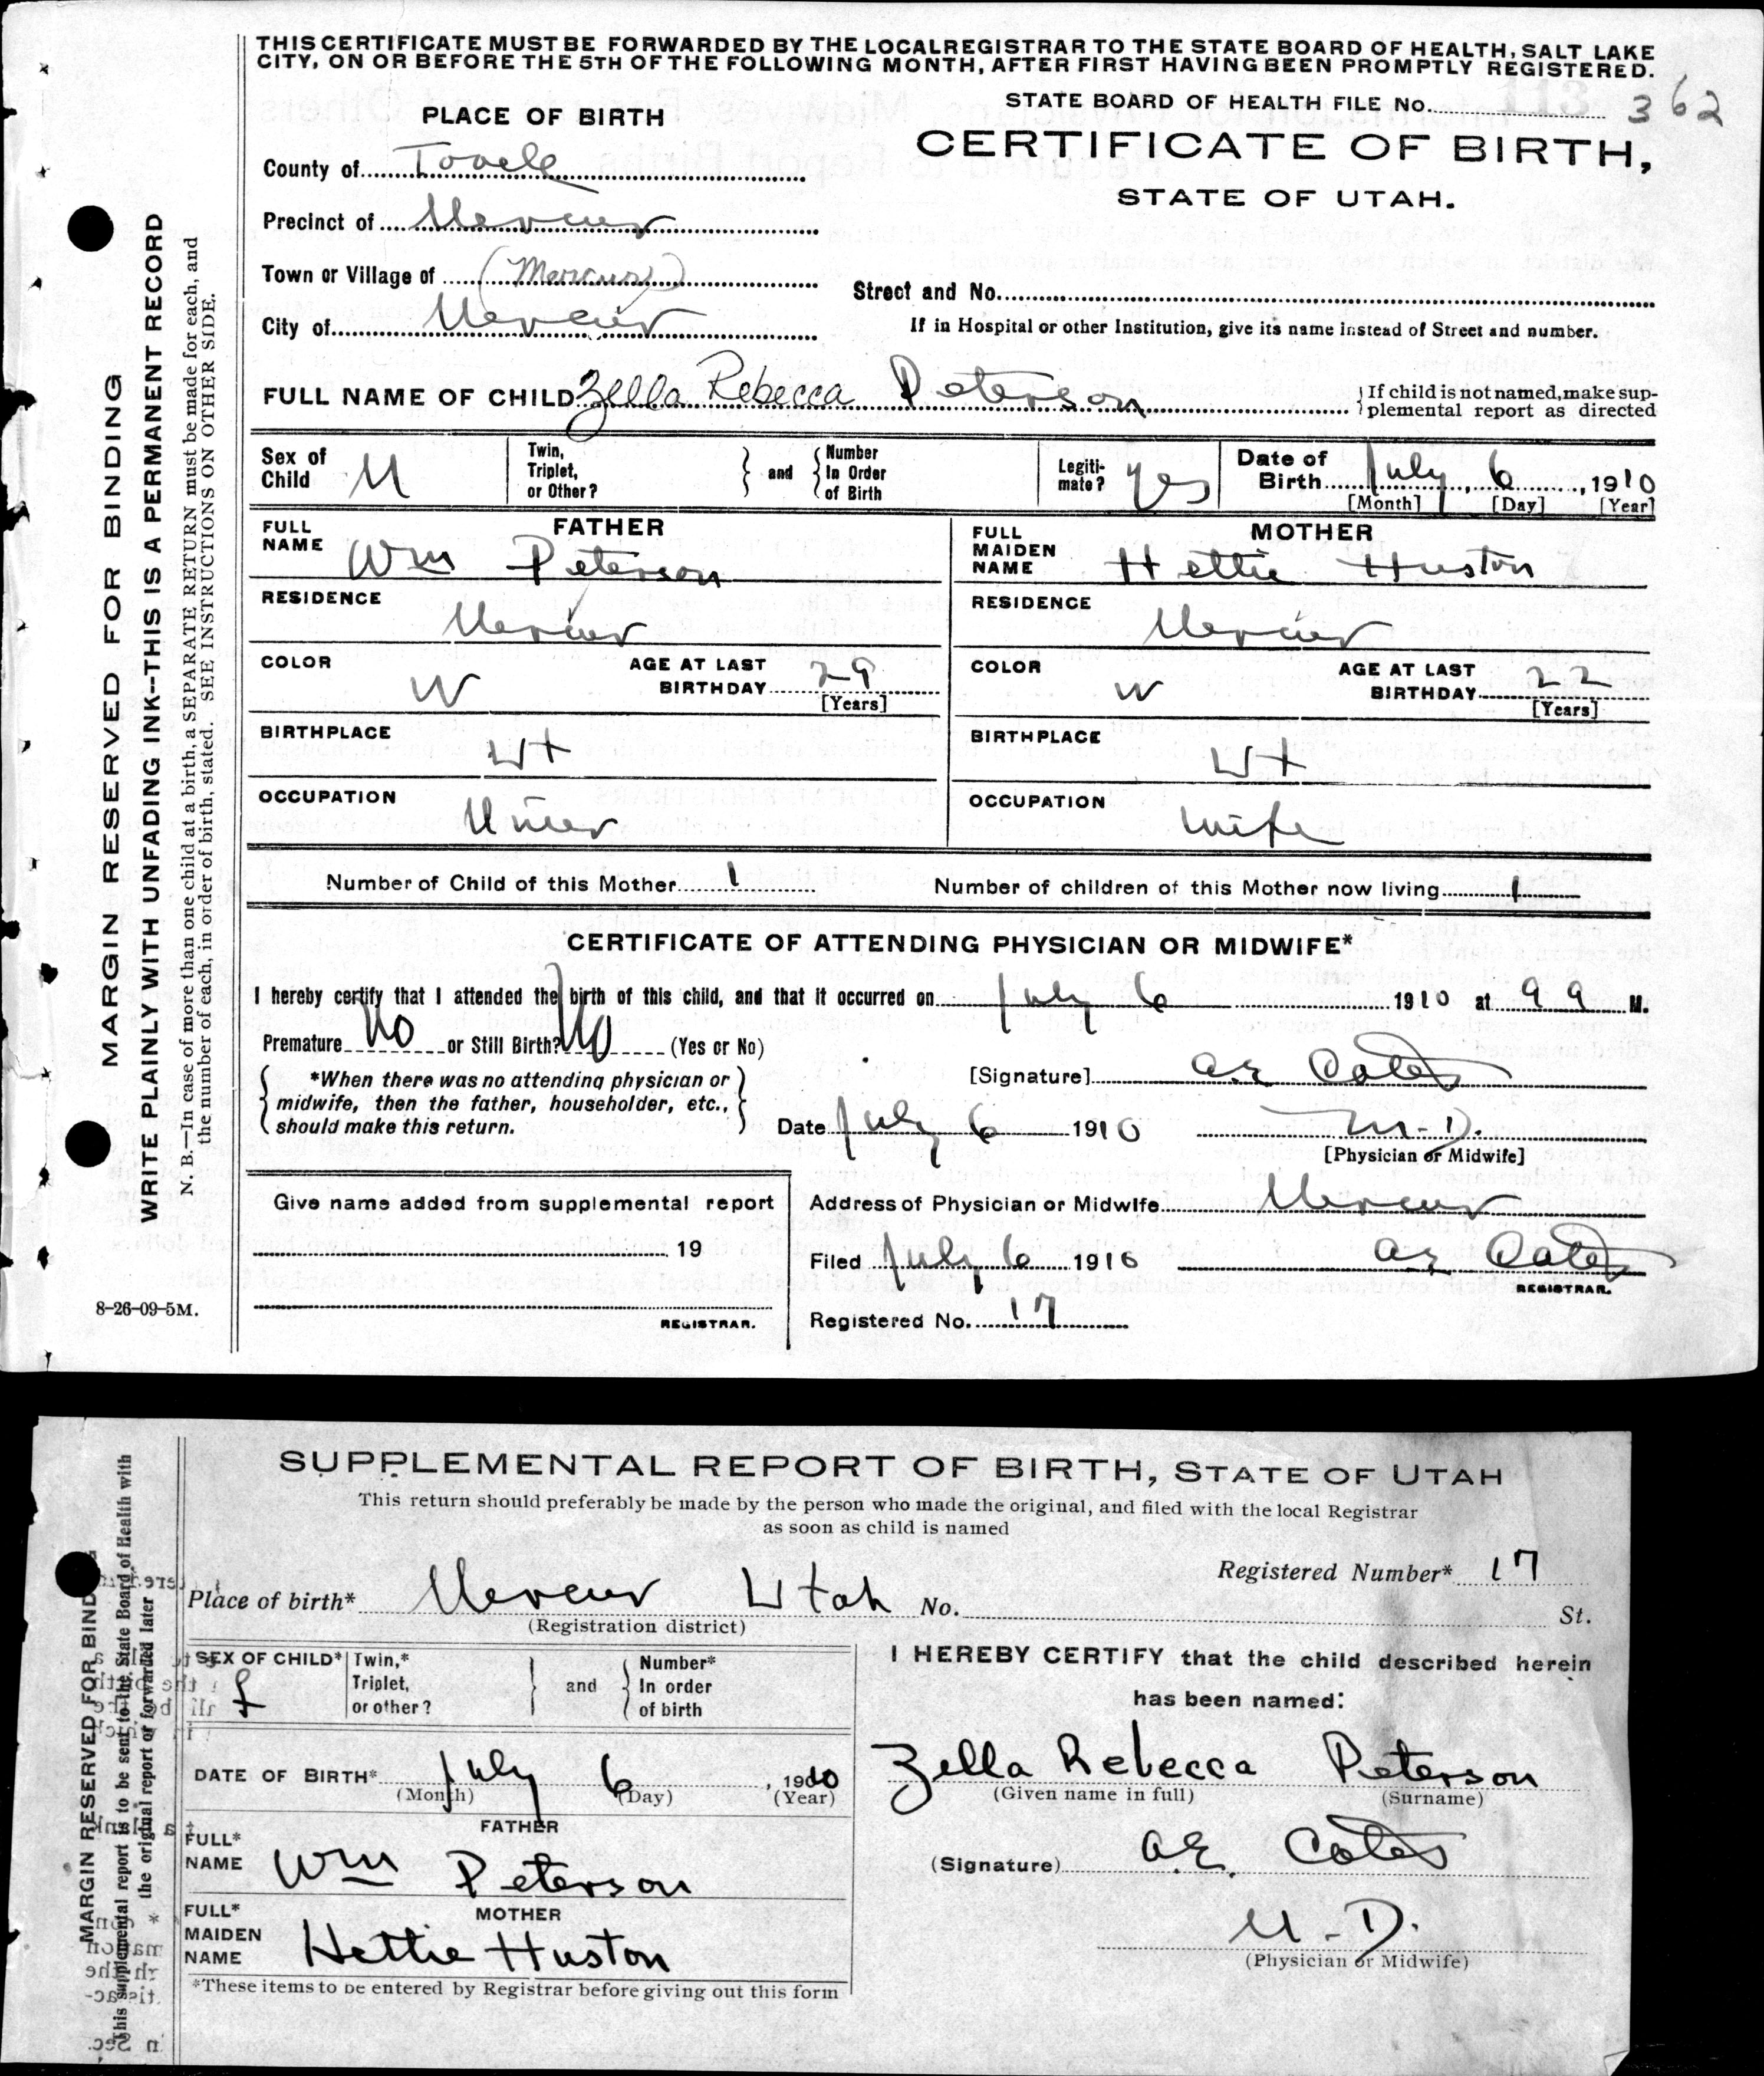 THIS CERTIFICATE MUST BE FORWARDED BY THE LOCAL REGISTRAR TO THE STATE BOARD OF HEALTH, SALT LAKE
CITY, ON OR BEFORE THE 5TH OF THE FOLLOWING MONTH, AFTER FIRST HAVING BEEN PROMPTLY REGISTERED.
STATE BOARD OF HEALTH FILE No. 362
PLACE OF BIRTH
CERTIFICATE OF BIRTH,
STATE OF UTAH.
County of Tooele
Precinct of Mercur
Town or Village of (Mercur)
Street and No.
City of Mercur
If in Hospital or other Institution, give its name instead of Street and number.
FULL NAME OF CHILD Zella Rebecca Peterson
If child is not named, make sup-
plemental report as directed
Sex of Child M
Twin, Triplet, or Other?
and
Number In Order of Birth
Legiti-mate? yes
Date of Birth July 6, 1910
[Month] [Day] [Year]
FATHER
FULL NAME Wm Peterson
RESIDENCE Mercur
COLOR W
AGE AT LAST BIRTHDAY 29
[Years]
BIRTHPLACE Ut
OCCUPATION Miner
MOTHER
FULL MAIDEN NAME Hettie Huston
RESIDENCE Mercur
COLOR W
AGE AT LAST BIRTHDAY 22
[Years]
BIRTHPLACE Ut
OCCUPATION Wife
Number of Child of this Mother 1
Number of children of this Mother now living 1
CERTIFICATE OF ATTENDING PHYSICIAN OR MIDWIFE*
I hereby certify that I attended the birth of this child, and that it occurred on July 6 1910 at 9 a M.
Premature No or Still Birth? No (Yes or No)
*When there was no attending physician or
midwife, then the father, householder, etc.,
should make this return.
[Signature] A.E. Cotes
Date July 6 1910
M.D.
[Physician or Midwife]
Give name added from supplemental report
19
REGISTRAR.
Address of Physician or Midwife Mercur
Filed July 6 1910 A.E. Cotes
REGISTRAR.
Registered No. 17
MARGIN RESERVED FOR BINDING
WRITE PLAINLY WITH UNFADING INK--THIS IS A PERMANENT RECORD
N. B.—In case of more than one child at a birth, a SEPARATE RETURN must be made for each, and
the number of each, in order of birth, stated. SEE INSTRUCTIONS ON OTHER SIDE.
8-26-09-5M.
SUPPLEMENTAL REPORT OF BIRTH, STATE OF UTAH
This return should preferably be made by the person who made the original, and filed with the local Registrar
as soon as child is named
Registered Number* 17
Place of birth* Mercur Utah No. St.
(Registration district)
SEX OF CHILD* f
Twin,* Triplet, or other?
and
Number* In order of birth
DATE OF BIRTH* July 6, 1910
(Month) (Day) (Year)
FATHER
FULL* NAME Wm Peterson
MOTHER
FULL* MAIDEN NAME Hettie Huston
*These items to be entered by Registrar before giving out this form
I HEREBY CERTIFY that the child described herein
has been named:
Zella Rebecca Peterson
(Given name in full) (Surname)
(Signature) A.E. Cotes
M.D.
(Physician or Midwife)
MARGIN RESERVED FOR BINDING
This supplemental report is to be sent to the State Board of Health with
the original report or forwarded later